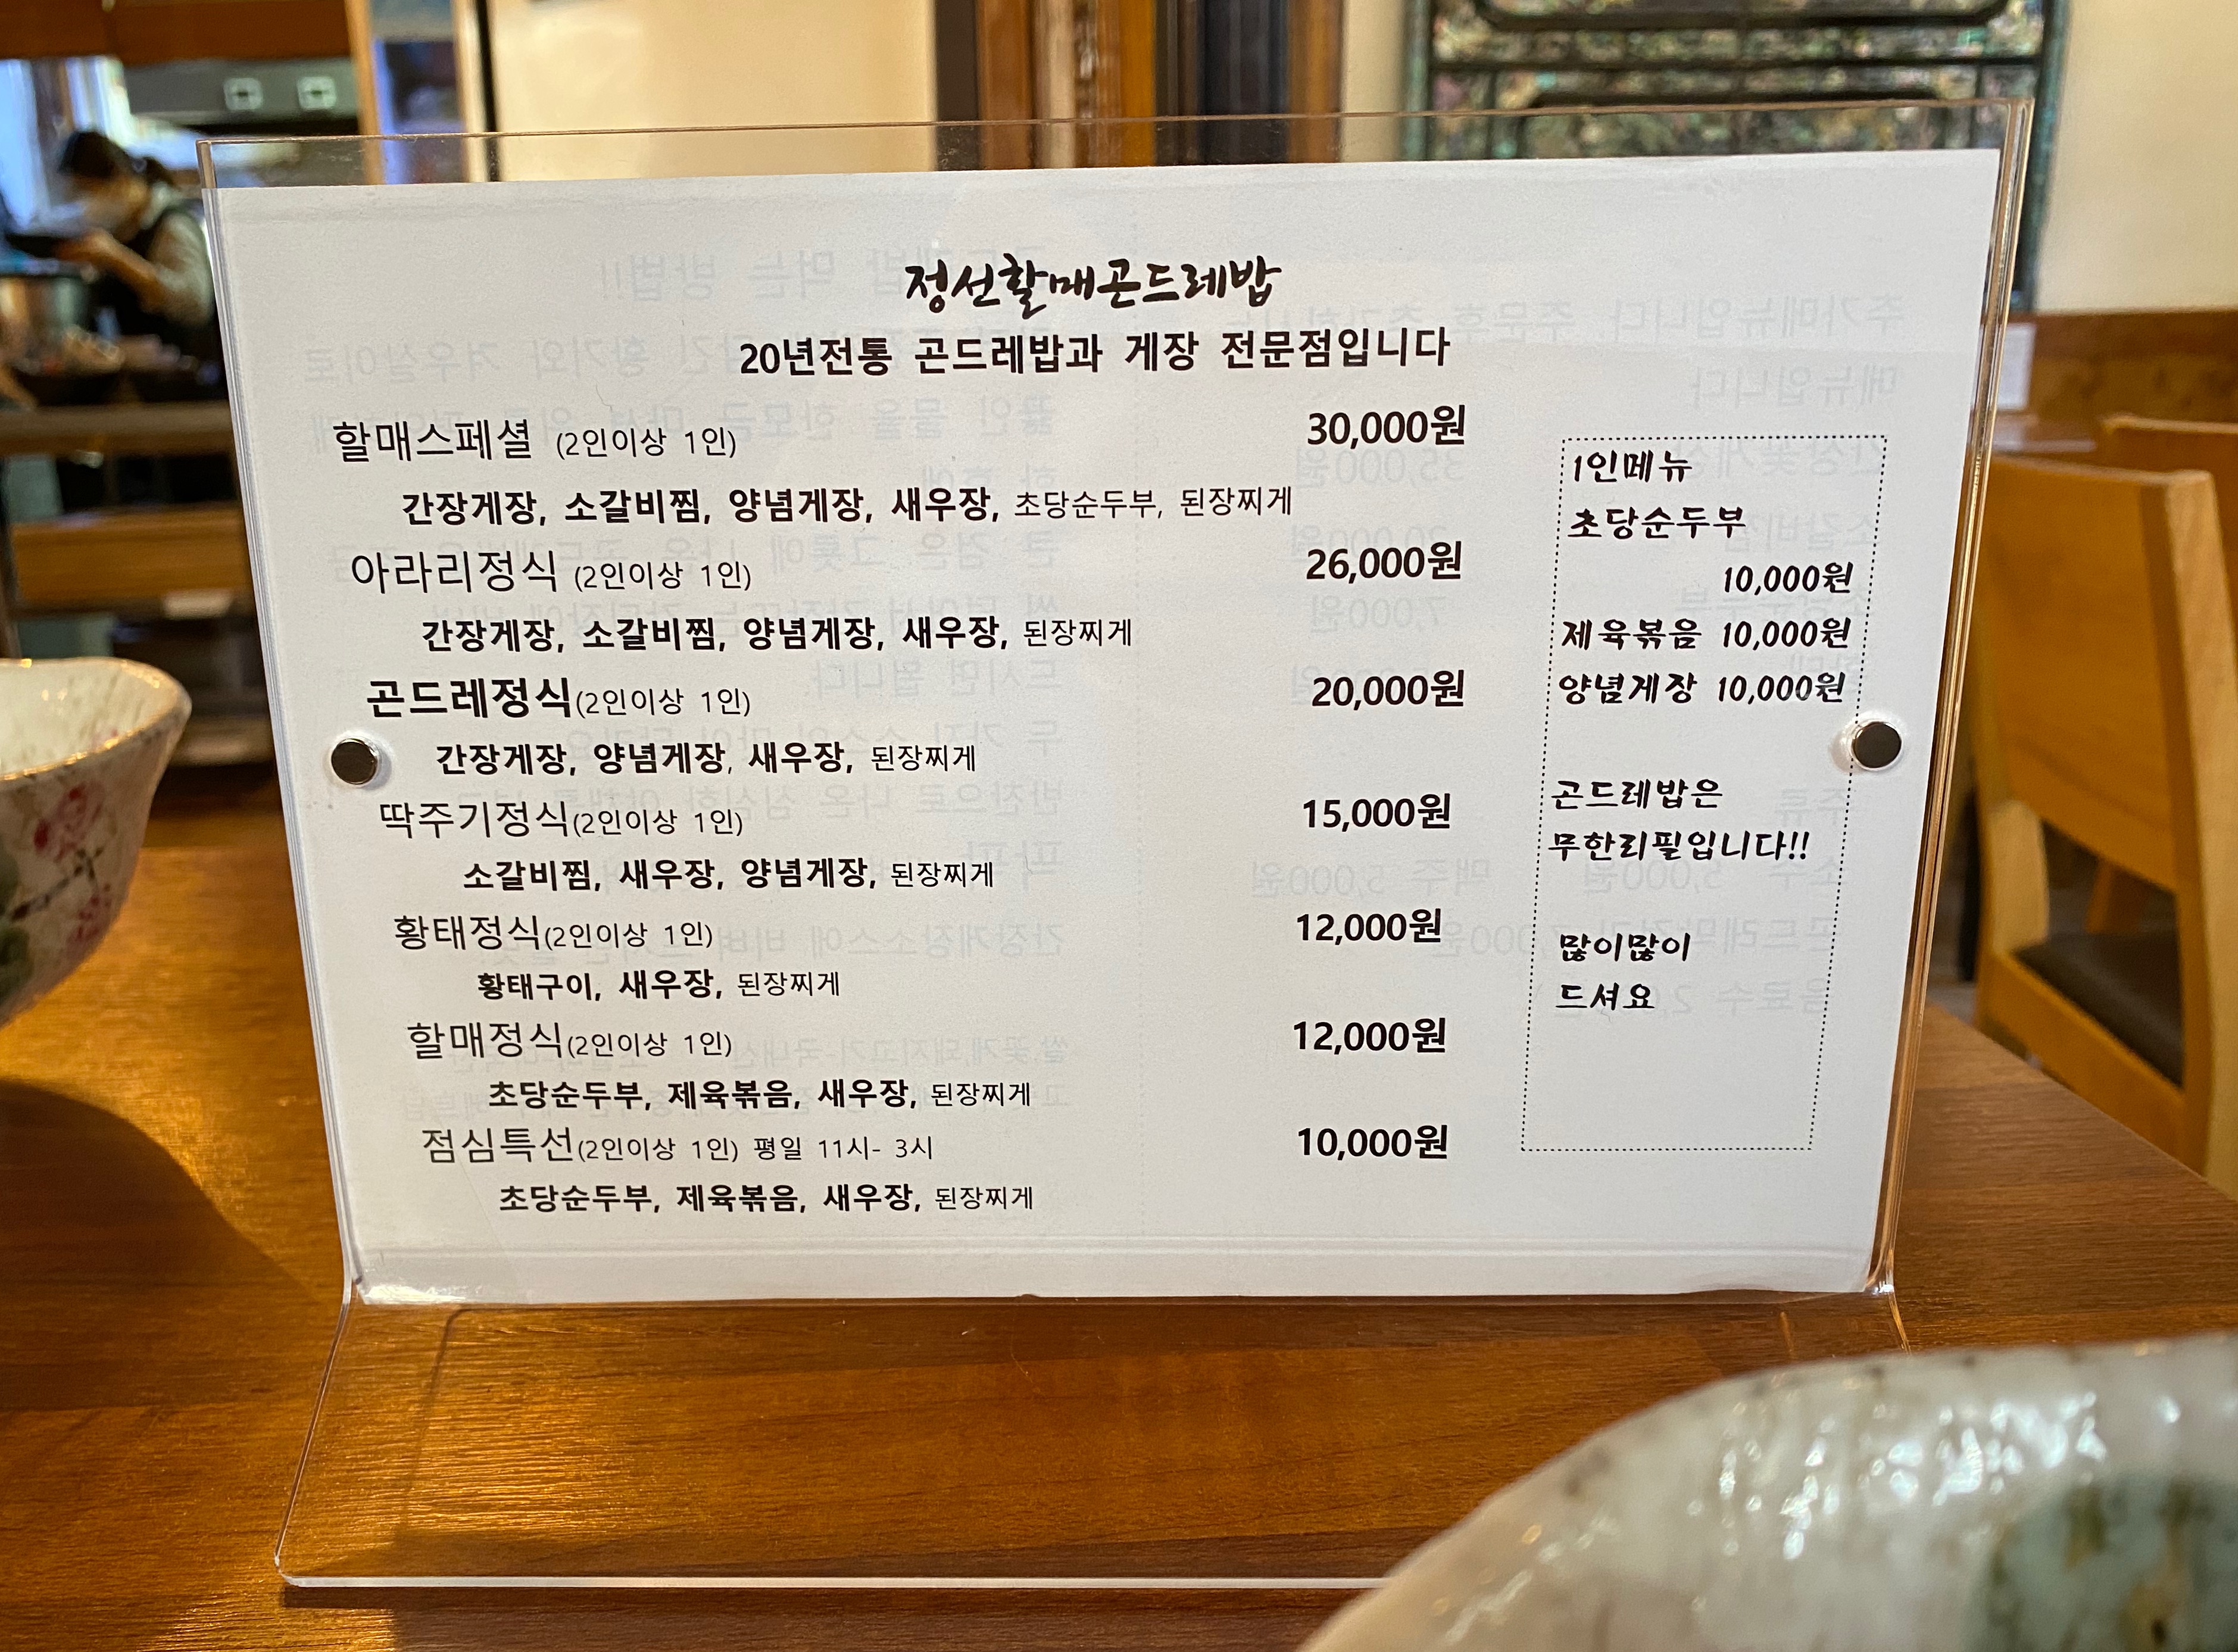 정선할매곤드레밥
20년전통 곤드레밥과 게장 전문점입니다
할매스페셜 (2인이상 1인) 30,000원
간장게장, 소갈비찜, 양념게장, 새우장, 초당순두부, 된장찌게
아라리정식 (2인이상 1인) 26,000원
간장게장, 소갈비찜, 양념게장, 새우장, 된장찌게
곤드레정식(2인이상 1인) 20,000원
간장게장, 양념게장, 새우장, 된장찌게
딱주기정식(2인이상 1인) 15,000원
소갈비찜, 새우장, 양념게장, 된장찌게
황태정식(2인이상 1인) 12,000원
황태구이, 새우장, 된장찌게
할매정식(2인이상 1인) 12,000원
초당순두부, 제육볶음, 새우장, 된장찌게
점심특선(2인이상 1인) 평일 11시- 3시 10,000원
초당순두부, 제육볶음, 새우장, 된장찌게
1인메뉴
초당순두부
10,000원
제육볶음 10,000원
양념게장 10,000원
곤드레밥은
무한리필입니다!!
많이많이
드셔요